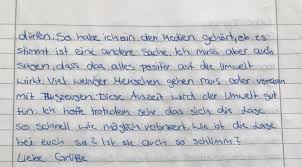 dürfen. So habe ich in den Medien gehört, ob es
stimmt ist eine andere Sache. Ich muss aber auch
sagen, dass das alles positiv auf die Umwelt
wirkt. Viel weniger Menschen gehen raus oder verreisen
mit Flugzeugen. Diese Auszeit wird der Umwelt gut
tun. Ich hoffe trotzdem sehr das sich die Lage
so schnell wie möglich verbessert. Wie ist die Lage
bei euch so? Ist sie auch so schlimm?
Liebe Grüße